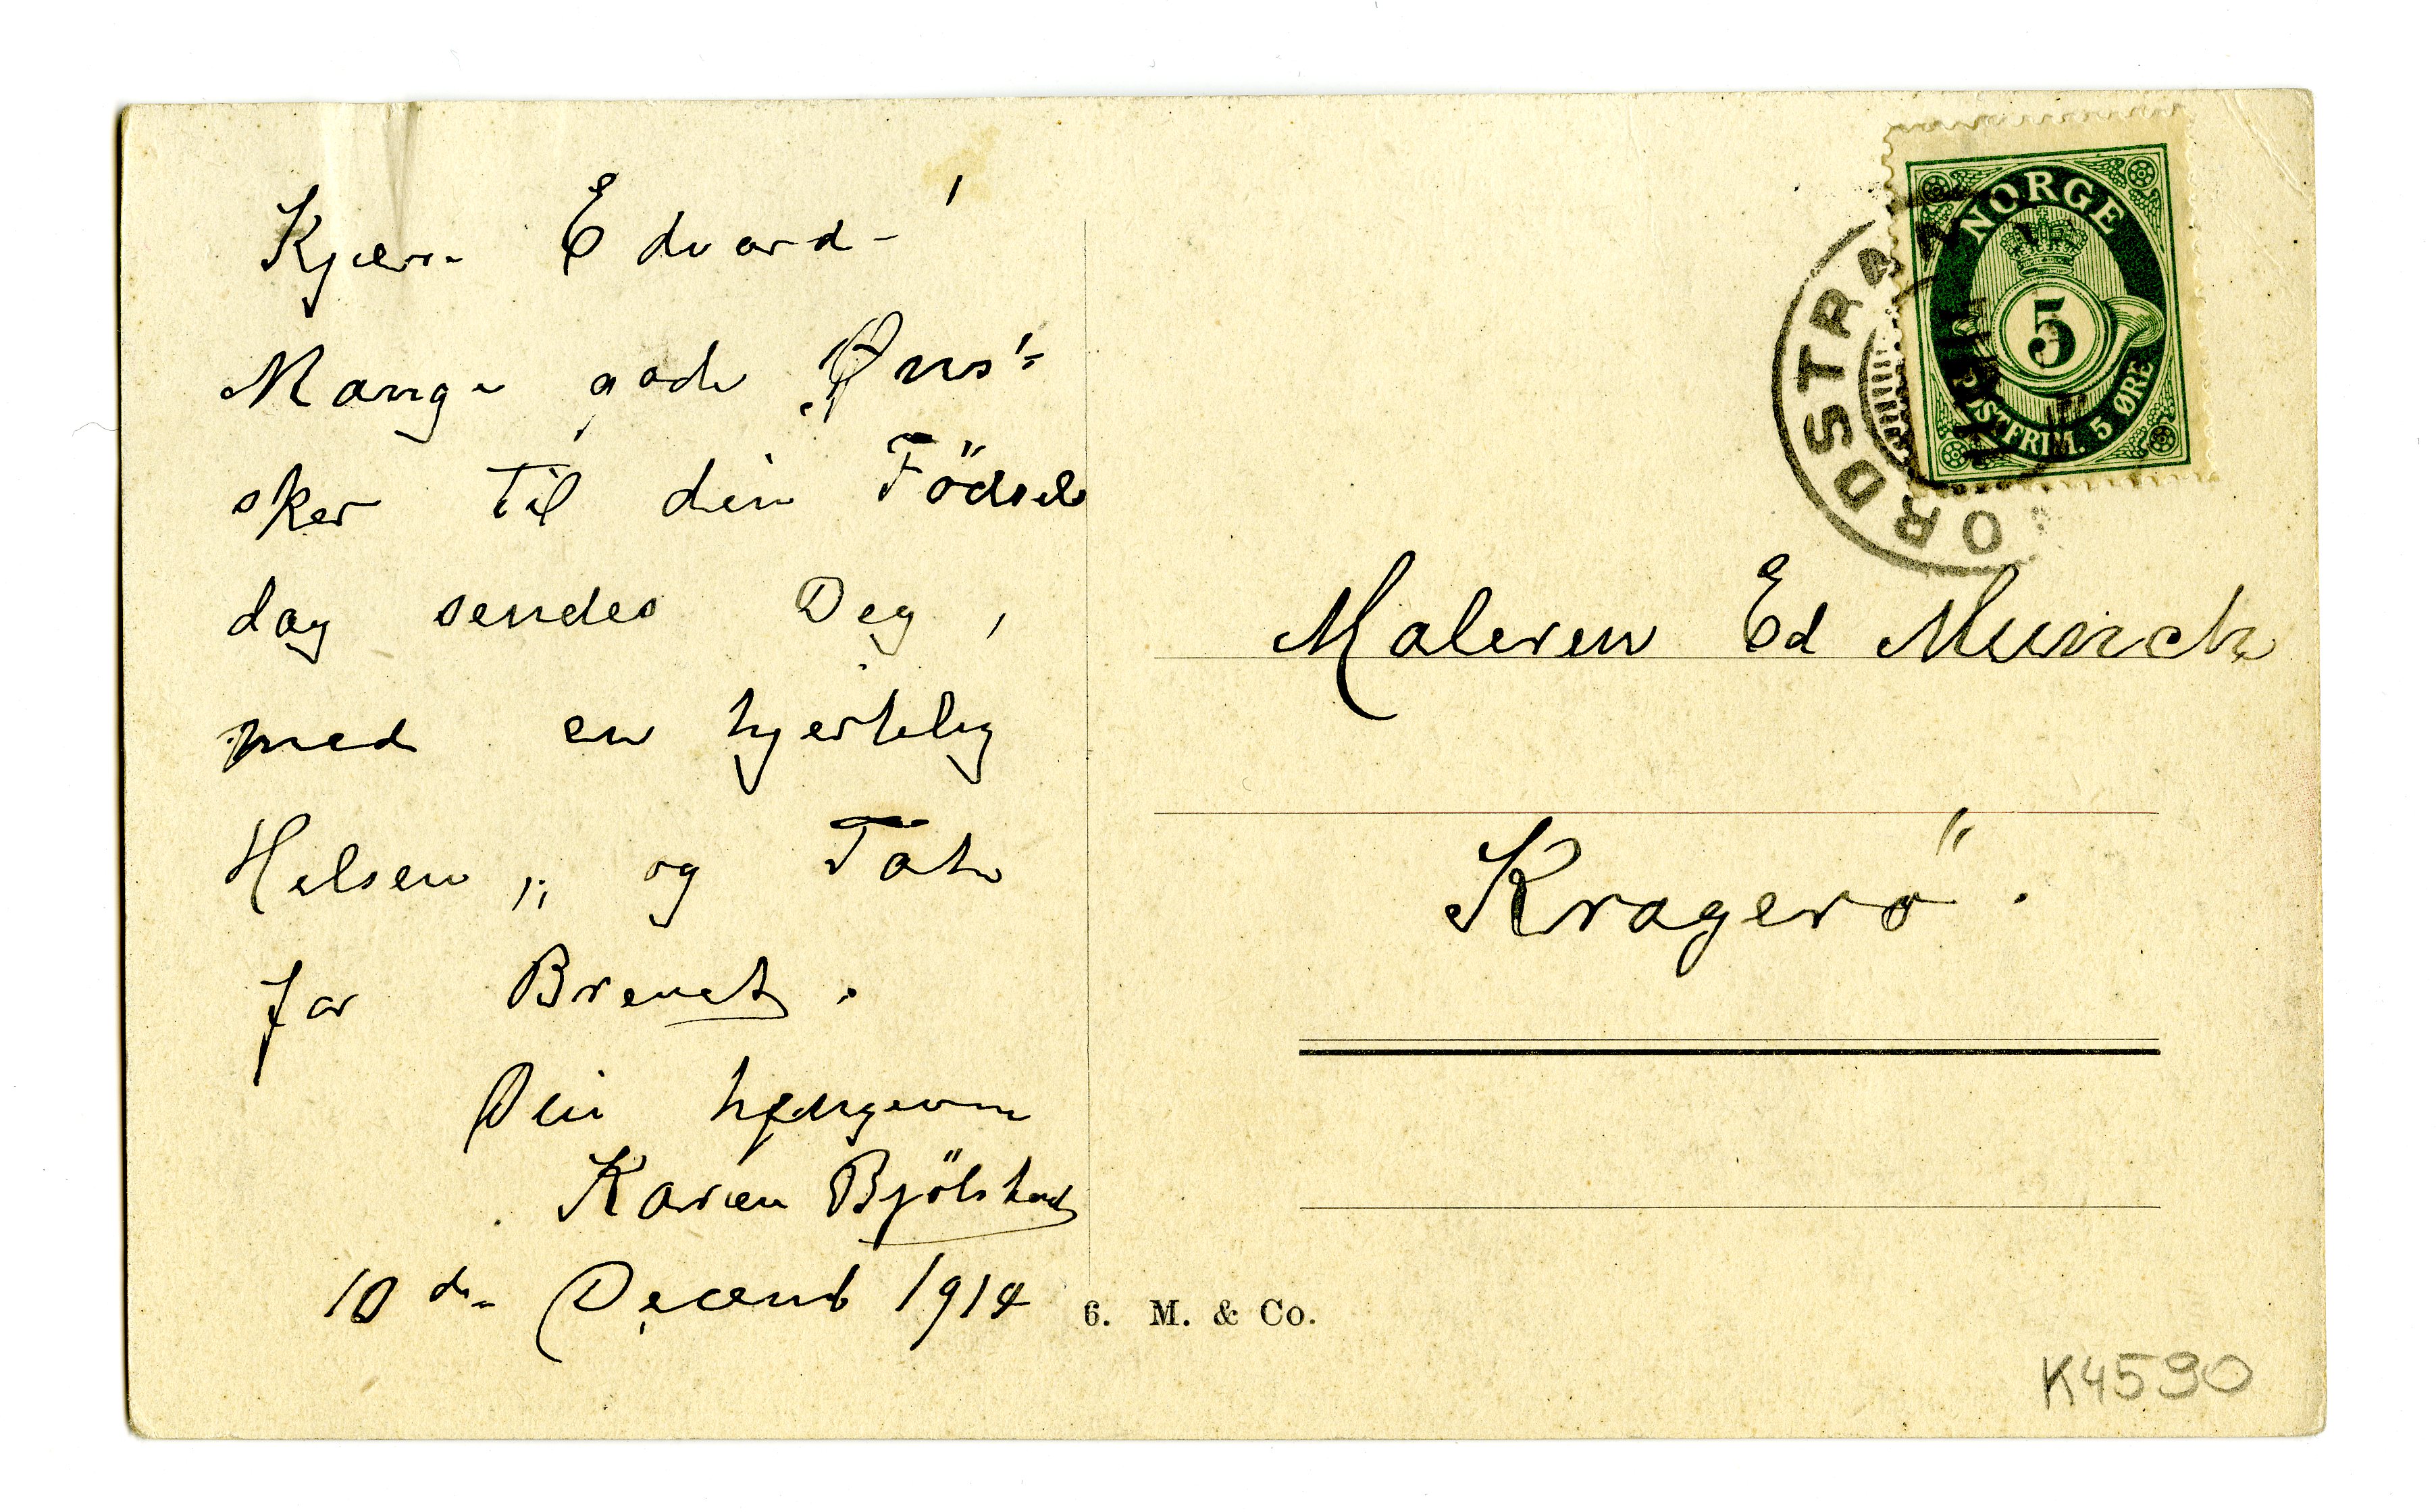 Kjære Edvard!
Mange gode Øns=
sker til din Födsels
dag sendes Deg,
med en hjertelig
Hilsen, og Tak
for Brevet.
Din hengivne
Karen Bjölstad
10de Decemb 1914
NORGE
5
POSTFRIM. 5 ØRE
ORDSTRAN
Maleren Ed Munch
Kragerö.
6. M. & Co.
K4590